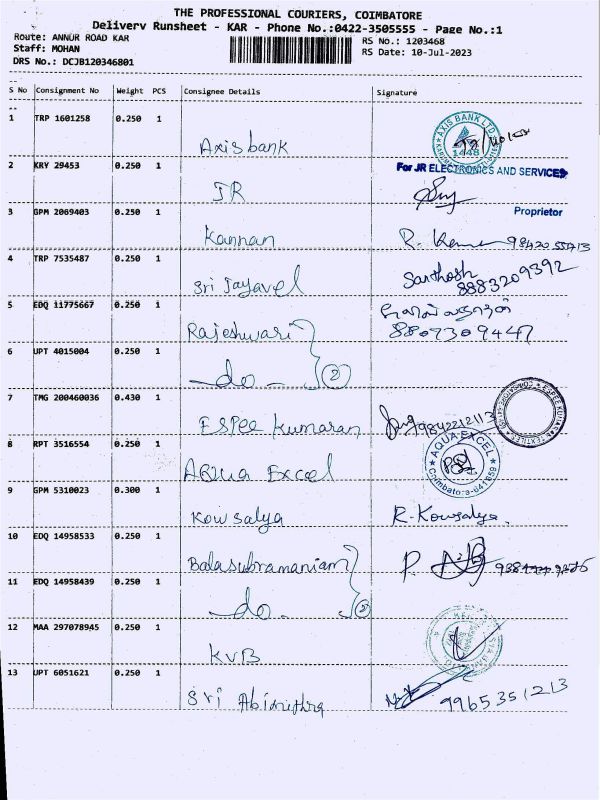 THE PROFESSIONAL COURIERS, COIMBATORE
Delivery Runsheet - KAR - Phone No.:0422-3505555 - Page No.:1
Route: ANNUR ROAD KAR
RS No.: 1203468
Staff: MOHAN
RS Date: 10-Jul-2023
DRS No.: DCJB120346801
S No Consignment No Weight PCS Consignee Details Signature
1 TRP 1601258 0.250 1 Axis bank AXIS BANK LTD 1448
2 KRY 29453 0.250 1 JR For JR ELECTRONICS AND SERVICES
Proprietor
3 GPM 2069403 0.250 1 Kannan R.
4 TRP 7535487 0.250 1 Sri Jayavel Santhosh
8883209392
5 EDQ 11775667 0.250 1 Rajeshwari
8807309447
6 UPT 4015004 0.250 1 do - 2
7 TMG 200460036 0.430 1 ESPEE Kumaran 9842212113
8 RPT 3516554 0.250 1 AQUA Excel AQUA EXCEL Coimbatore-641659
9 GPM 5310023 0.300 1 Kowsalya R-Kowsalya
10 EDQ 14958533 0.250 1 Balasubramaniam P.
11 EDQ 14958439 0.250 1 do - 2
12 MAA 297078945 0.250 1 KVB
13 UPT 6051621 0.250 1 Sri 9965351213